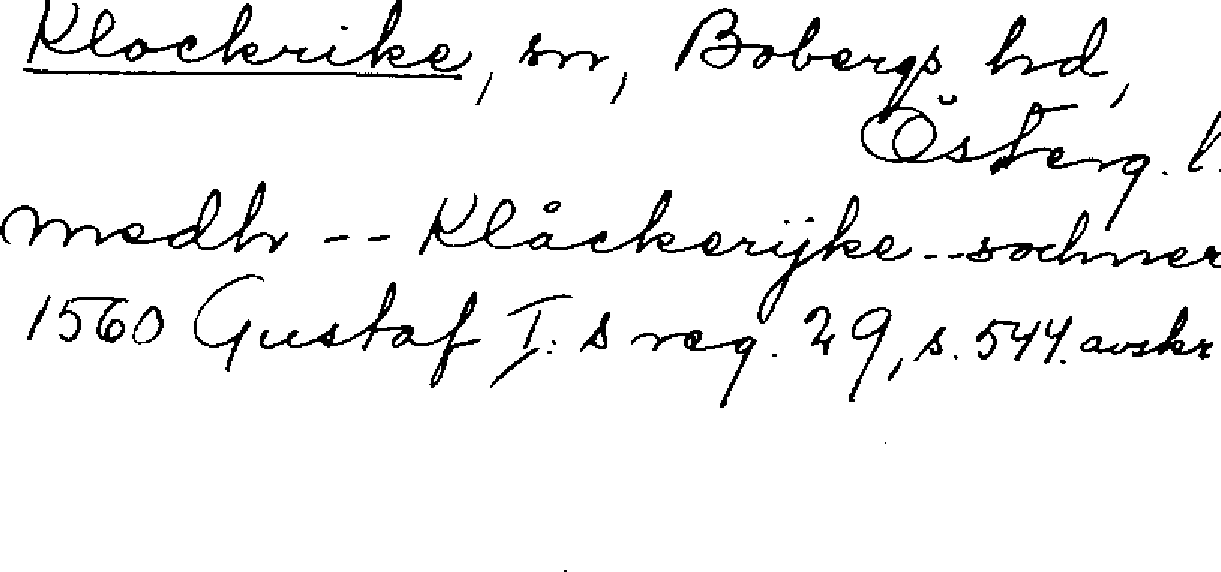 Klockrike, sn, Bobergs hd,
Österg. l.
medh -- Klåckerijke -- sochner
1560 Gustaf I:s reg. 29, s. 544. avskr